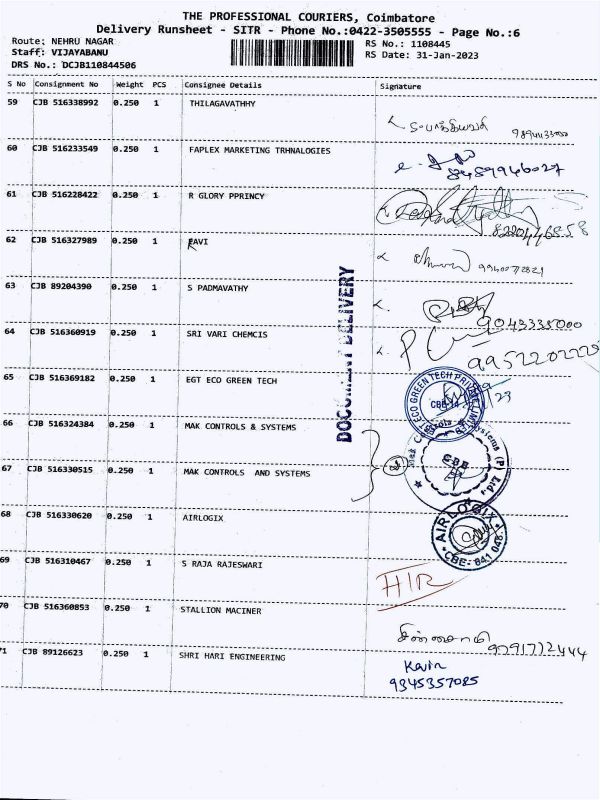 THE PROFESSIONAL COURIERS, Coimbatore
Delivery Runsheet - SITR - Phone No.:0422-3505555 - Page No.:6
Route: NEHRU NAGAR
Staff: VIJAYABANU
DRS No.: DCJB110844506
RS No.: 1108445
RS Date: 31-Jan-2023
S No Consignment No Weight PCS Consignee Details Signature
59 CJB 516338992 0.250 1 THILAGAVATHHY
60 CJB 516233549 0.250 1 FAPLEX MARKETING TRHNALOGIES
8489946027
61 CJB 516228422 0.250 1 R GLORY PPRINCY
62 CJB 516327989 0.250 1 RAVI
63 CJB 89204390 0.250 1 S PADMAVATHY
9043335000
64 CJB 516360919 0.250 1 SRI VARI CHEMCIS
9952202228
65 CJB 516369182 0.250 1 EGT ECO GREEN TECH
EGT ECO GREEN TECH PRIVATE LIMITED
DOCUMENT DELIVERY
66 CJB 516324384 0.250 1 MAK CONTROLS & SYSTEMS
67 CJB 516330515 0.250 1 MAK CONTROLS AND SYSTEMS
Mak Controls & Systems (P) Ltd.
CBE
68 CJB 516330620 0.250 1 AIRLOGIX
AIRLOGIX
CBE- 641 048.
69 CJB 516310467 0.250 1 S RAJA RAJESWARI
H/R
70 CJB 516360853 0.250 1 STALLION MACINER
9791772444
71 CJB 89126623 0.250 1 SHRI HARI ENGINEERING
Kavin
9345357085